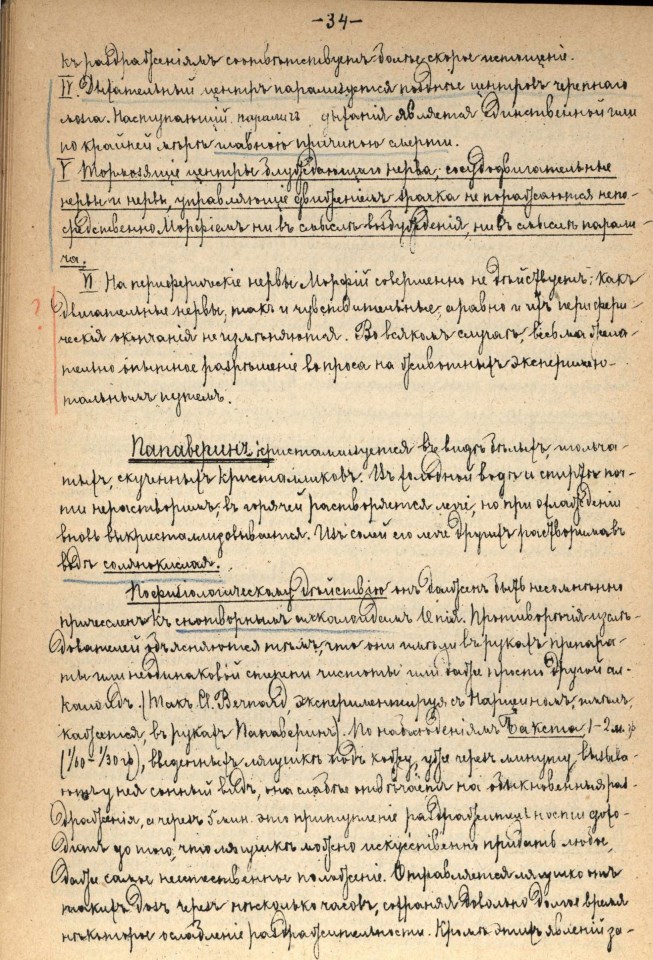 -34-
къ раздраженіямъ соотвѣтствуетъ болѣе скорое истощеніе.
IV. Дыхательный центръ парализуется позднѣе центровъ черепнаго
мозга. Наступающій параличъ дыханія является единственной или
по крайней мѣрѣ главною причиною смерти.
V Тормозящіе центры блуждающаго нерва, сосудодвигательные
нервы и нервы, управляющіе движеніемъ зрачка не поражаются непо-
средственно Морфіемъ ни въ смыслѣ возбужденія, ни въ смыслѣ парали-
ча.
VI На периферическіе нервы Морфій совершенно не дѣйствуетъ; какъ
? двигательные нервы, такъ и чувствительные, а равно и ихъ перифери-
ческія окончанія не измѣняются. Во всякомъ случаѣ, весьма жела-
тельно опытное разрѣшеніе вопроса на животныхъ эксперимен-
тальнымъ путемъ.
Папаверинъ кристаллизуется въ видѣ бѣлыхъ, иголъча-
тыхъ, скученныхъ кристалликовъ. Въ холодной водѣ и спиртѣ поч-
ти нерастворимъ; въ горячей растворяется легче, но при охлажденіи
вновь выкристаллизовывается. Изъ солей его легче другихъ растворима въ
водѣ солянокислая.
По физіологическому дѣйствію онъ долженъ быть несомнѣнно
причисленъ къ снотворнымъ алкалоидамъ Опія. Противорѣчія изслѣ-
дователей объясняются тѣмъ, что они имѣли въ рукахъ препара-
ты или неодинаковой степени чистоты или даже просто другой ал-
калоидъ. (Такъ Cl. Bernard, экспериментируя съ Нарцеиномъ, имѣлъ,
кажется, въ рукахъ Папаверинъ). По наблюденіямъ Бакста, 1-2 м.гр
(1/60 - 1/30 гр), введенныхъ лягушкѣ подъ кожу, уже черезъ минуту вызыва-
ютъ у нея сонный видъ, она слабѣе отвѣчаетъ на обыкновенныя раз-
драженія, а черезъ 5 мин. это притупленіе раздражительности дохо-
дитъ до того, что лягушкѣ можно искуственно придать любое,
даже самое неестественное положеніе. Оправляется лягушка отъ
такихъ дозъ черезъ нѣсколько часовъ, сохраняя довольно долгое время
нѣкоторое ослабленіе раздражительности. Кромѣ этихъ явленій за-